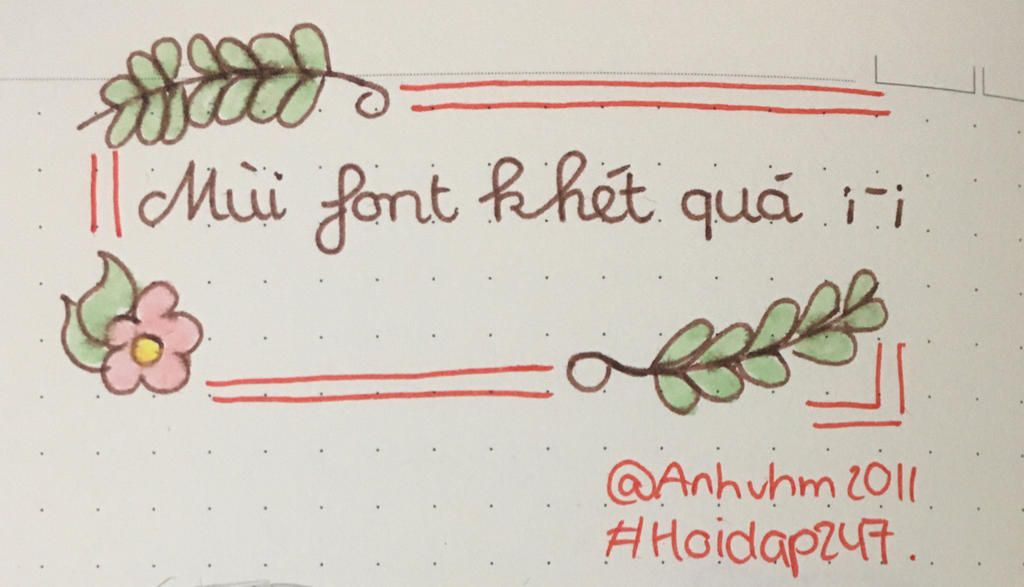 Mùi font khét quá i-i
@Anhvhm2011
#Hoidap247.